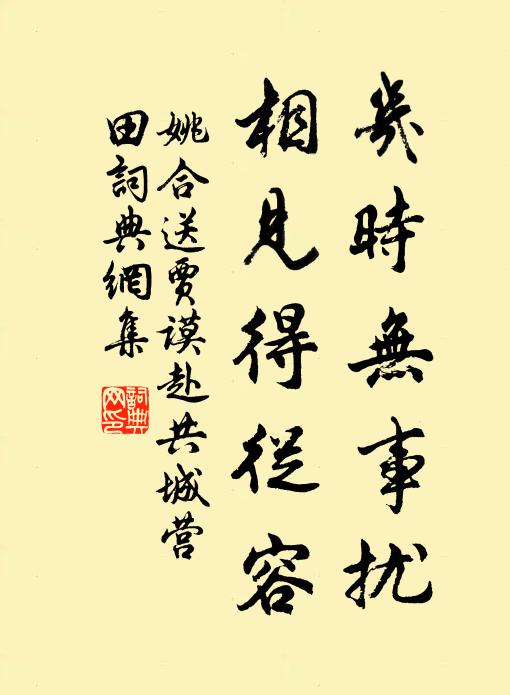 幾時無事扰
相見得從容
姚合送賈谟赴共城营
田詞典網集
詞典網印